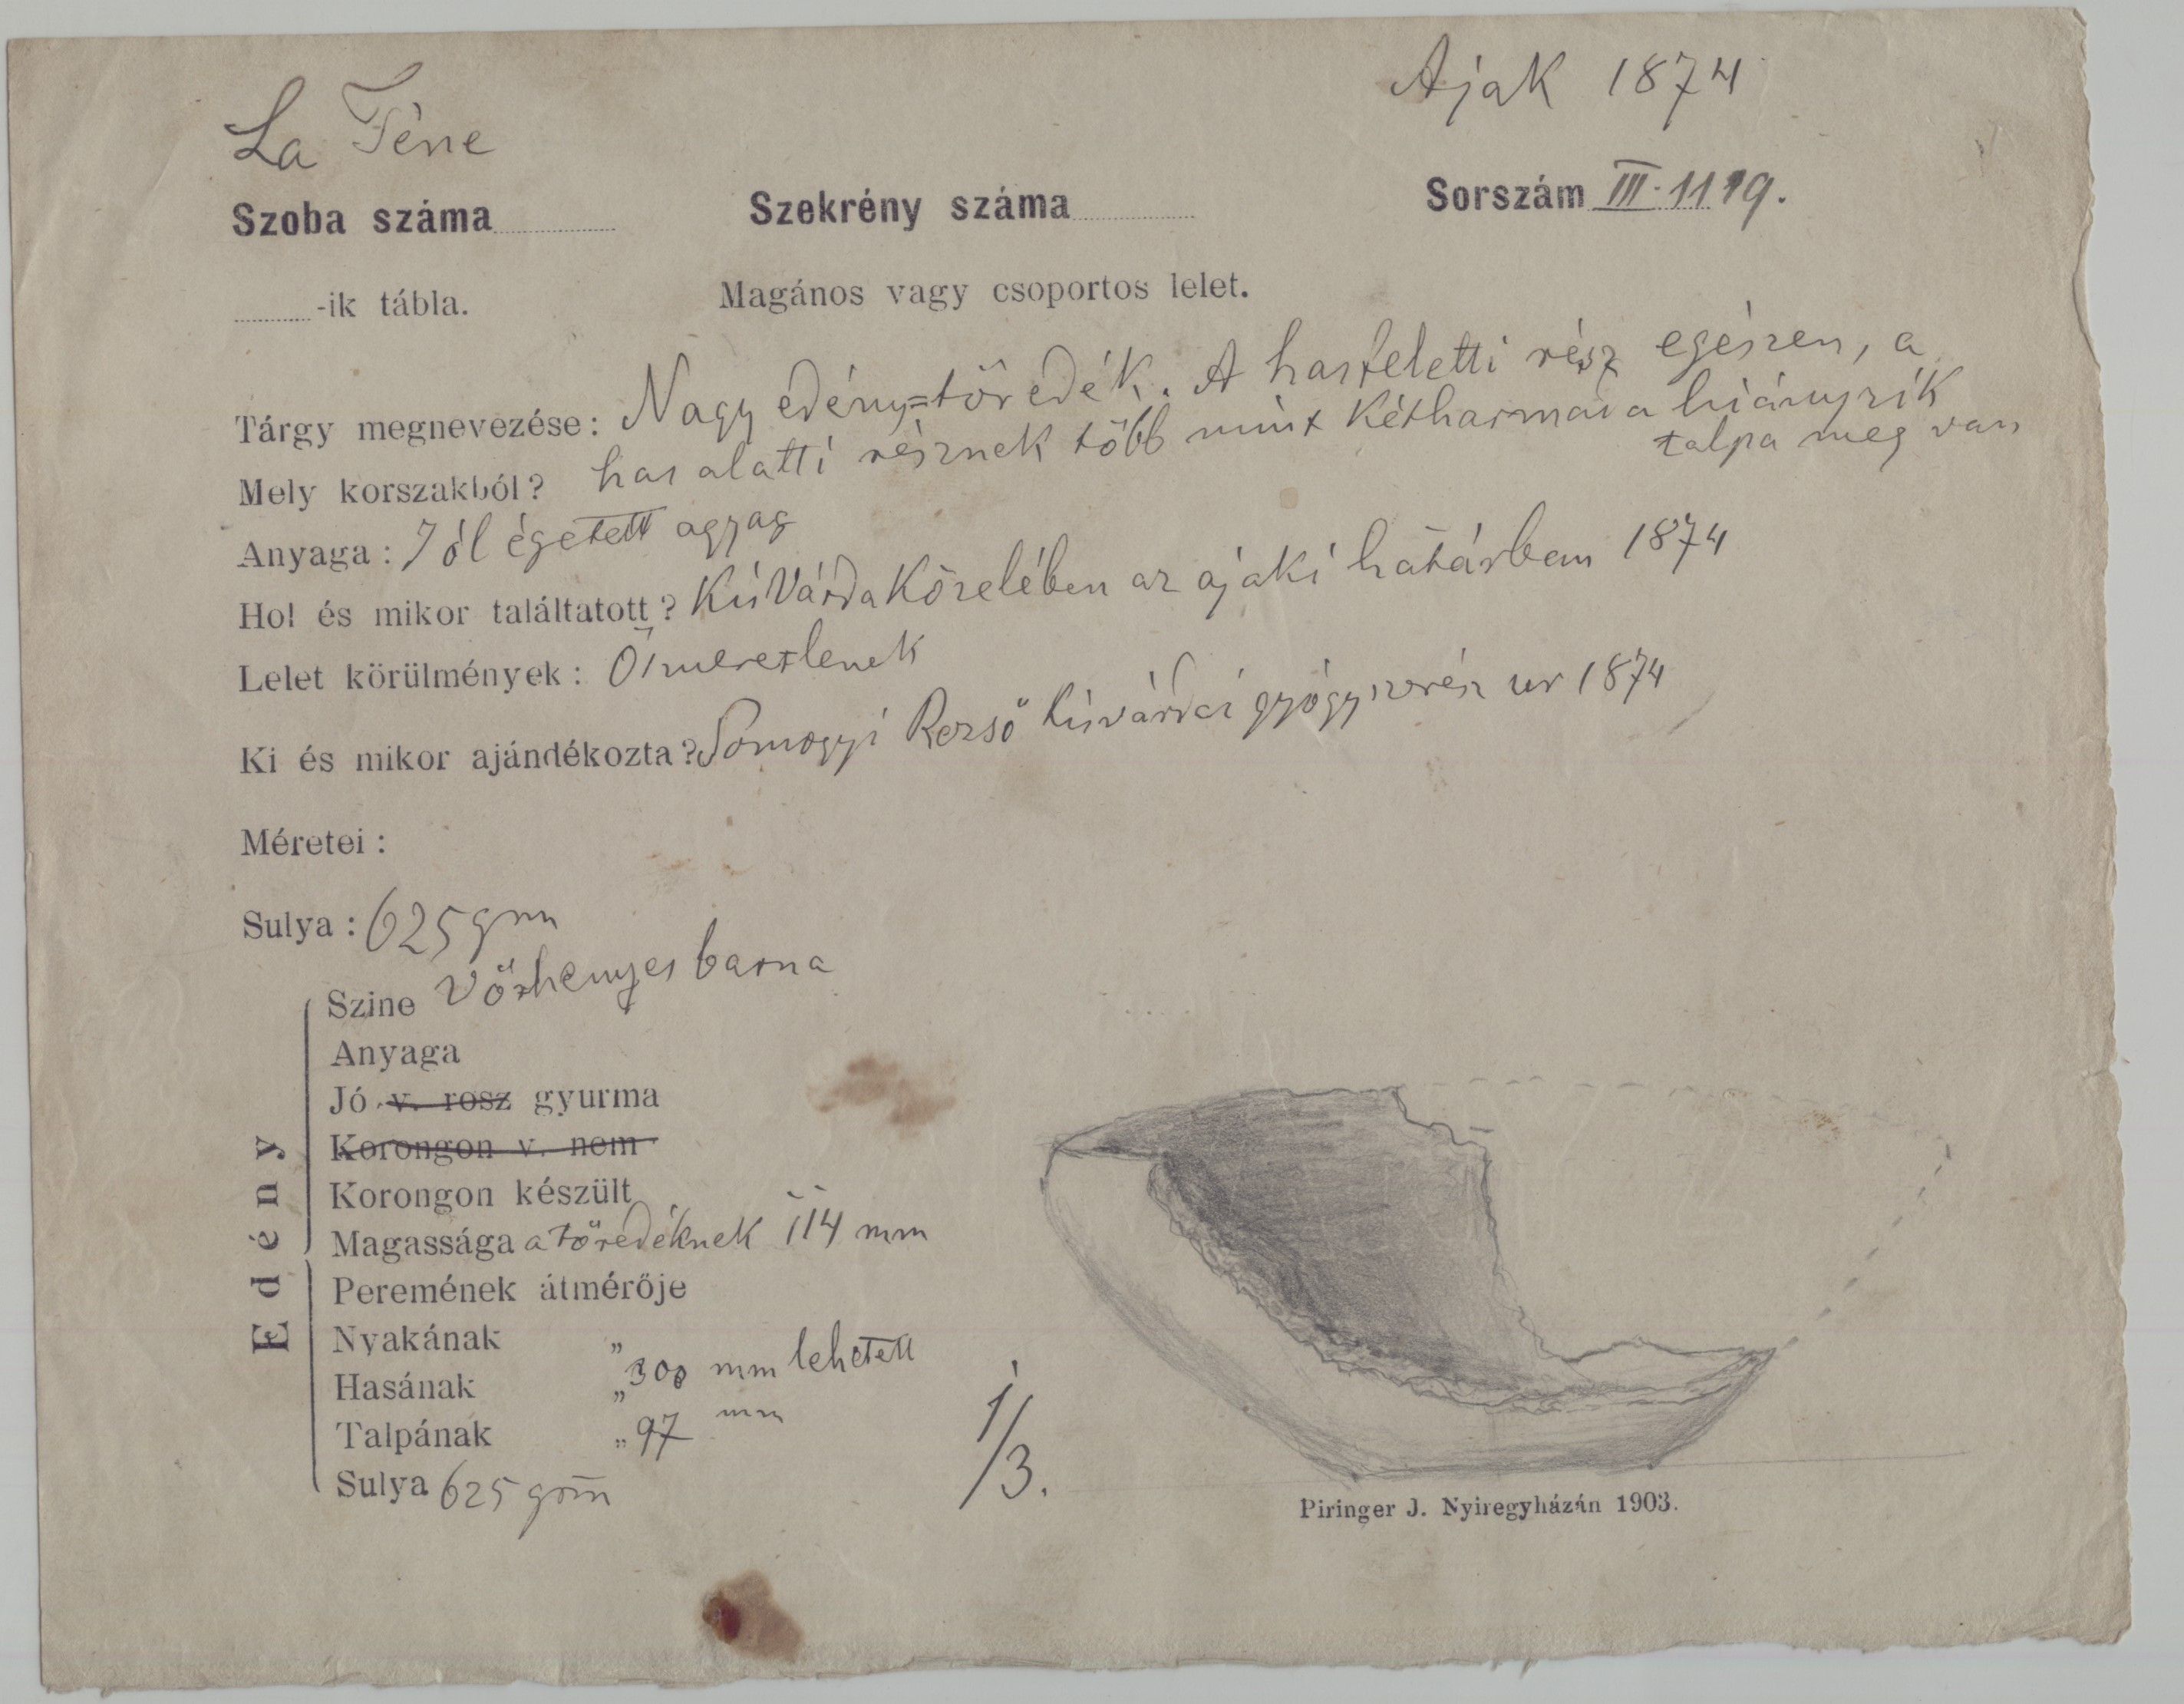 Ajak 1874
La Téne
Szoba száma Szekrény száma Sorszám III. 1119.
-ik tábla. Magános vagy csoportos lelet.
Tárgy megnevezése: Nagy edény=töredék. A hasfeletti rész egészen, a
Mely korszakból? has alatti résznek több mint kétharmada hiányzik
talpa meg van
Anyaga: Jól égetett agyag
Hol és mikor találtatott? Kis Várda közelében az ajaki határban 1874
Lelet körülmények: Ösmeretlenek
Ki és mikor ajándékozta? Somogyi Rezső kisvárdai gyógyszerész ur 1874
Méretei:
Sulya: 625 gm
Edény
Szine Vörhenyes barna
Anyaga
Jó v. rosz gyurma
Korongon v. nem
Korongon készült
Magassága a töredéknek 114 mm
Peremének átmérője
Nyakának "
Hasának " 300 mm lehetett
Talpának " 97 mm
Sulya 625 gm
1/3.
Piringer J. Nyiregyházán 1903.